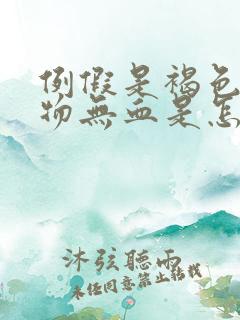 例假是褐色
物無血是怎
沐弦聽雨
未经同意禁止转载